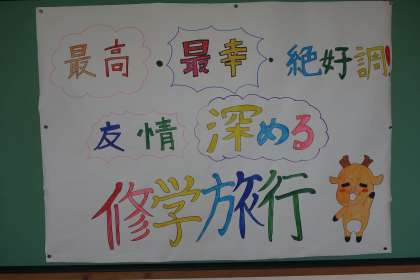 最高・最幸・絶好調!
友情 深める
修学旅行